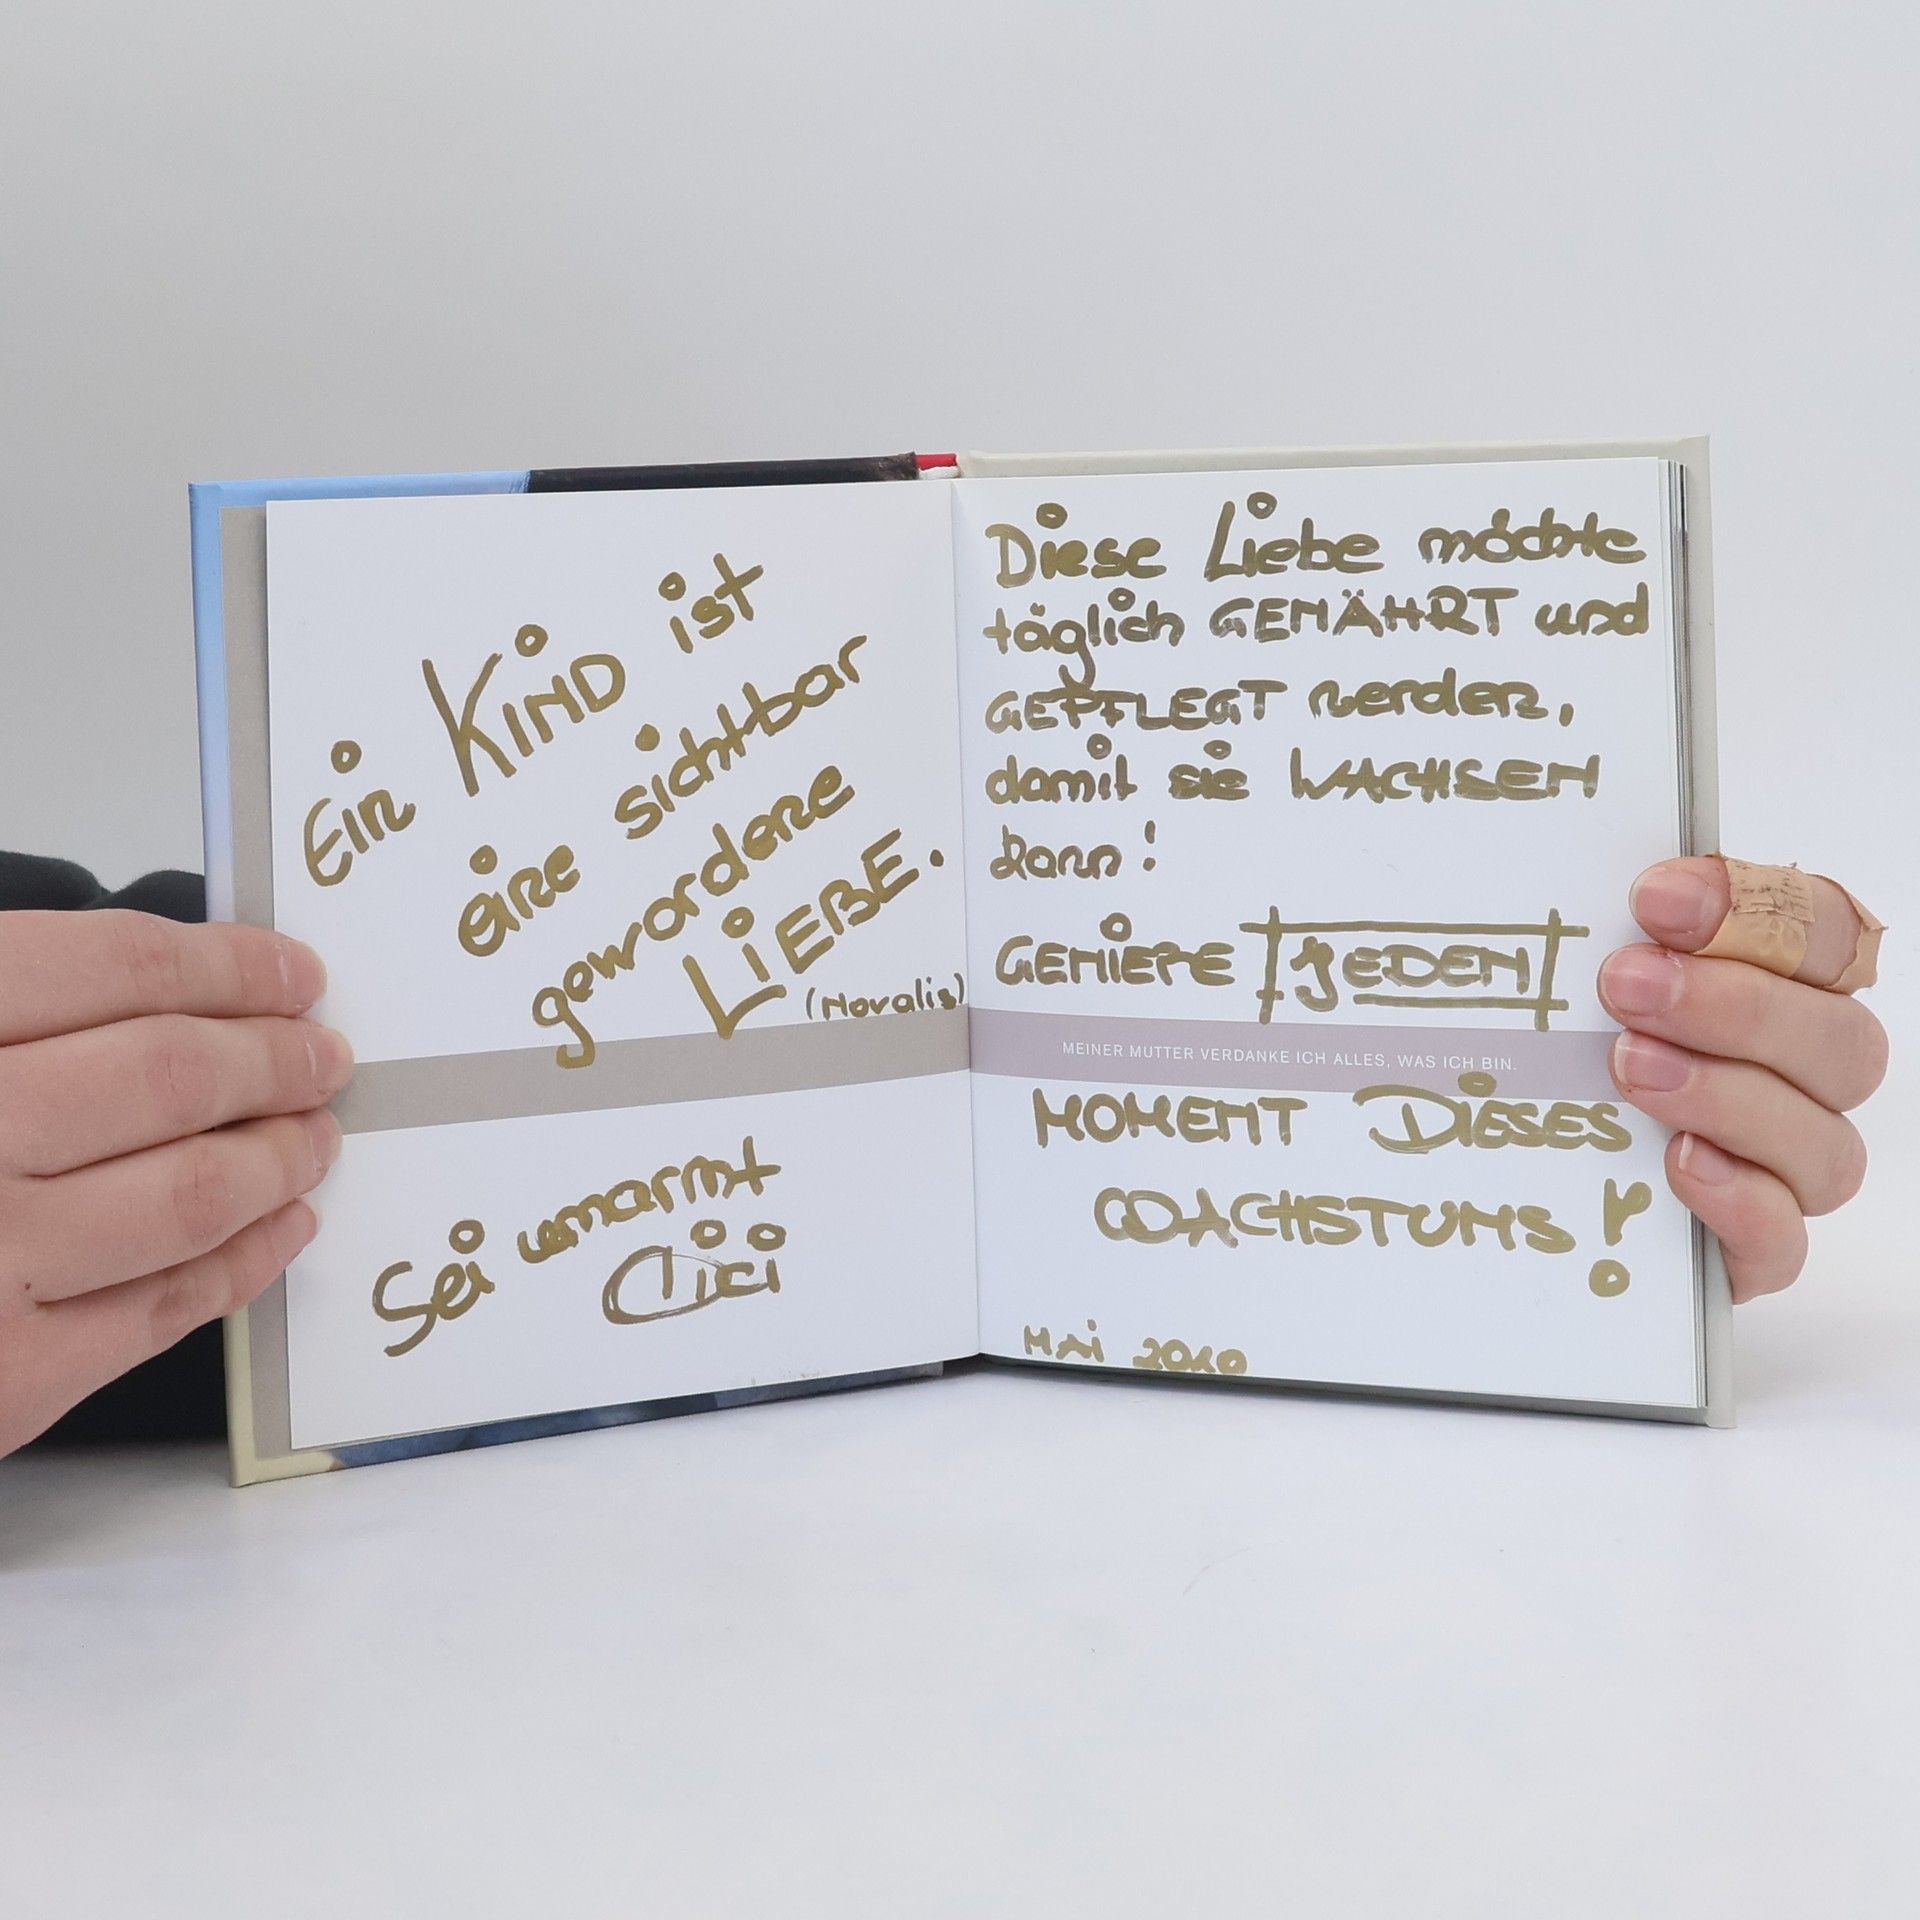 Ein KIND ist
eine sichtbar
gewordene
LiEBE.
(Novalis)
Sei umarmt
Cici
Diese Liebe möchte
täglich GENÄHRT und
GEPFLEGT werden,
damit sie WACHSEN
kann!
GENiEßE JEDEN
MEINER MUTTER VERDANKE ICH ALLES, WAS ICH BIN.
MOMENT DiESES
WACHSTUMS!
MAi 2010